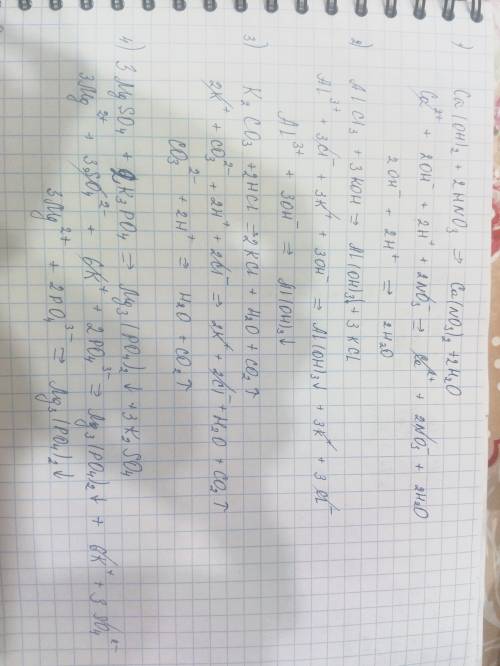 1) Ca(OH)₂ + 2HNO₃ → Ca(NO₃)₂ + 2H₂O
Ca²⁺ + 2OH⁻ + 2H⁺ + 2NO₃⁻ ⇒ Ca²⁺ + 2NO₃⁻ + 2H₂O
2OH⁻ + 2H⁺ ⇒ 2H₂O
2) AlCl₃ + 3KOH → Al(OH)₃↓ + 3KCl
Al³⁺ + 3Cl⁻ + 3K⁺ + 3OH⁻ ⇒ Al(OH)₃↓ + 3K⁺ + 3Cl⁻
Al³⁺ + 3OH⁻ ⇒ Al(OH)₃↓
3) K₂CO₃ + 2HCl ⇒ 2KCl + H₂O + CO₂↑
2K⁺ + CO₃²⁻ + 2H⁺ + 2Cl⁻ ⇒ 2K⁺ + 2Cl⁻ + H₂O + CO₂↑
CO₃²⁻ + 2H⁺ ⇒ H₂O + CO₂↑
4) 3MgSO₄ + 2K₃PO₄ ⇒ Mg₃(PO₄)₂↓ + 3K₂SO₄
3Mg²⁺ + 3SO₄²⁻ + 6K⁺ + 2PO₄³⁻ ⇒ Mg₃(PO₄)₂↓ + 6K⁺ + 3SO₄²⁻
3Mg²⁺ + 2PO₄³⁻ ⇒ Mg₃(PO₄)₂↓